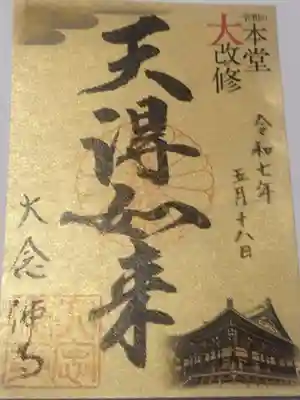 本堂
大改修
令和七年
五月十八日
天得如来
大念佛寺